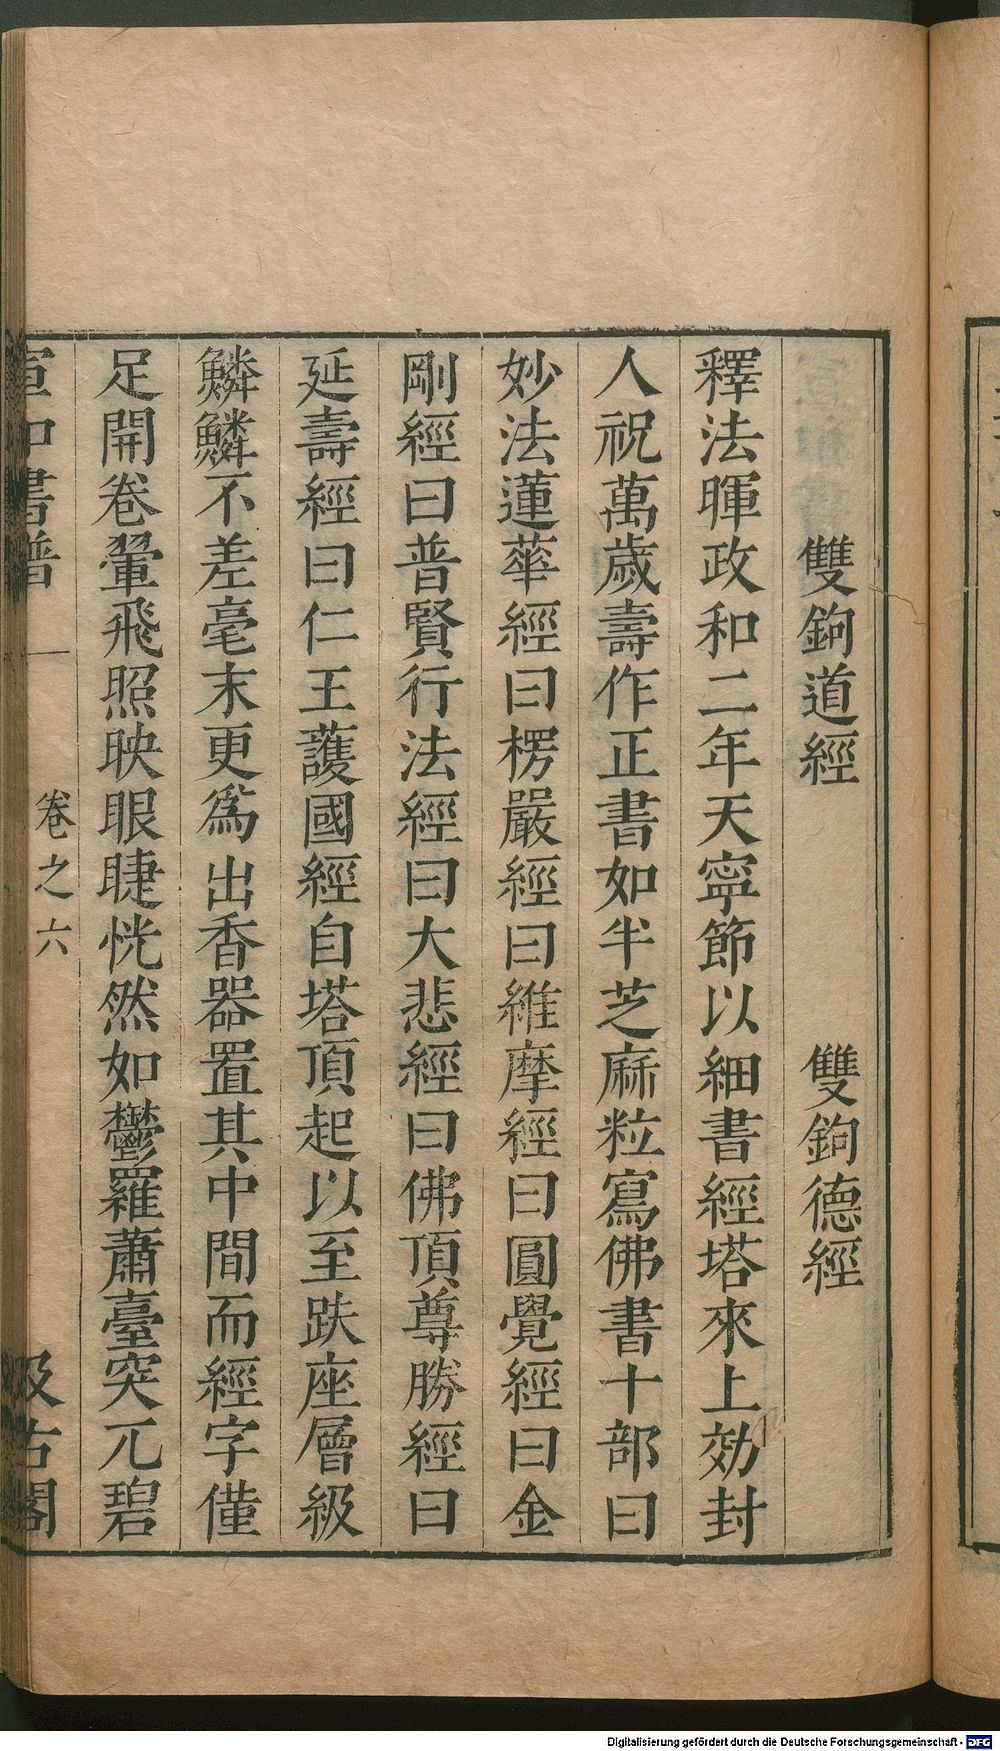 雙鉤道經　雙鉤德經
釋法暉政和二年天寧節以細書經塔來上効封
人祝萬歲壽作正書如半芝麻粒寫佛書十部曰
妙法蓮華經曰楞嚴經曰維摩經曰圓覺經曰金
剛經曰普賢行法經曰大悲經曰佛頂尊勝經曰
延壽經曰仁王護國經自塔頂起以至趺座層級
鱗鱗不差毫末更爲出香器置其中間而經字僅
足開卷翬飛照映眼睫恍然如鬱羅蕭臺突兀碧
宣和書譜　卷之六　汲古閣
Digitalisierung gefördert durch die Deutsche Forschungsgemeinschaft - DFG